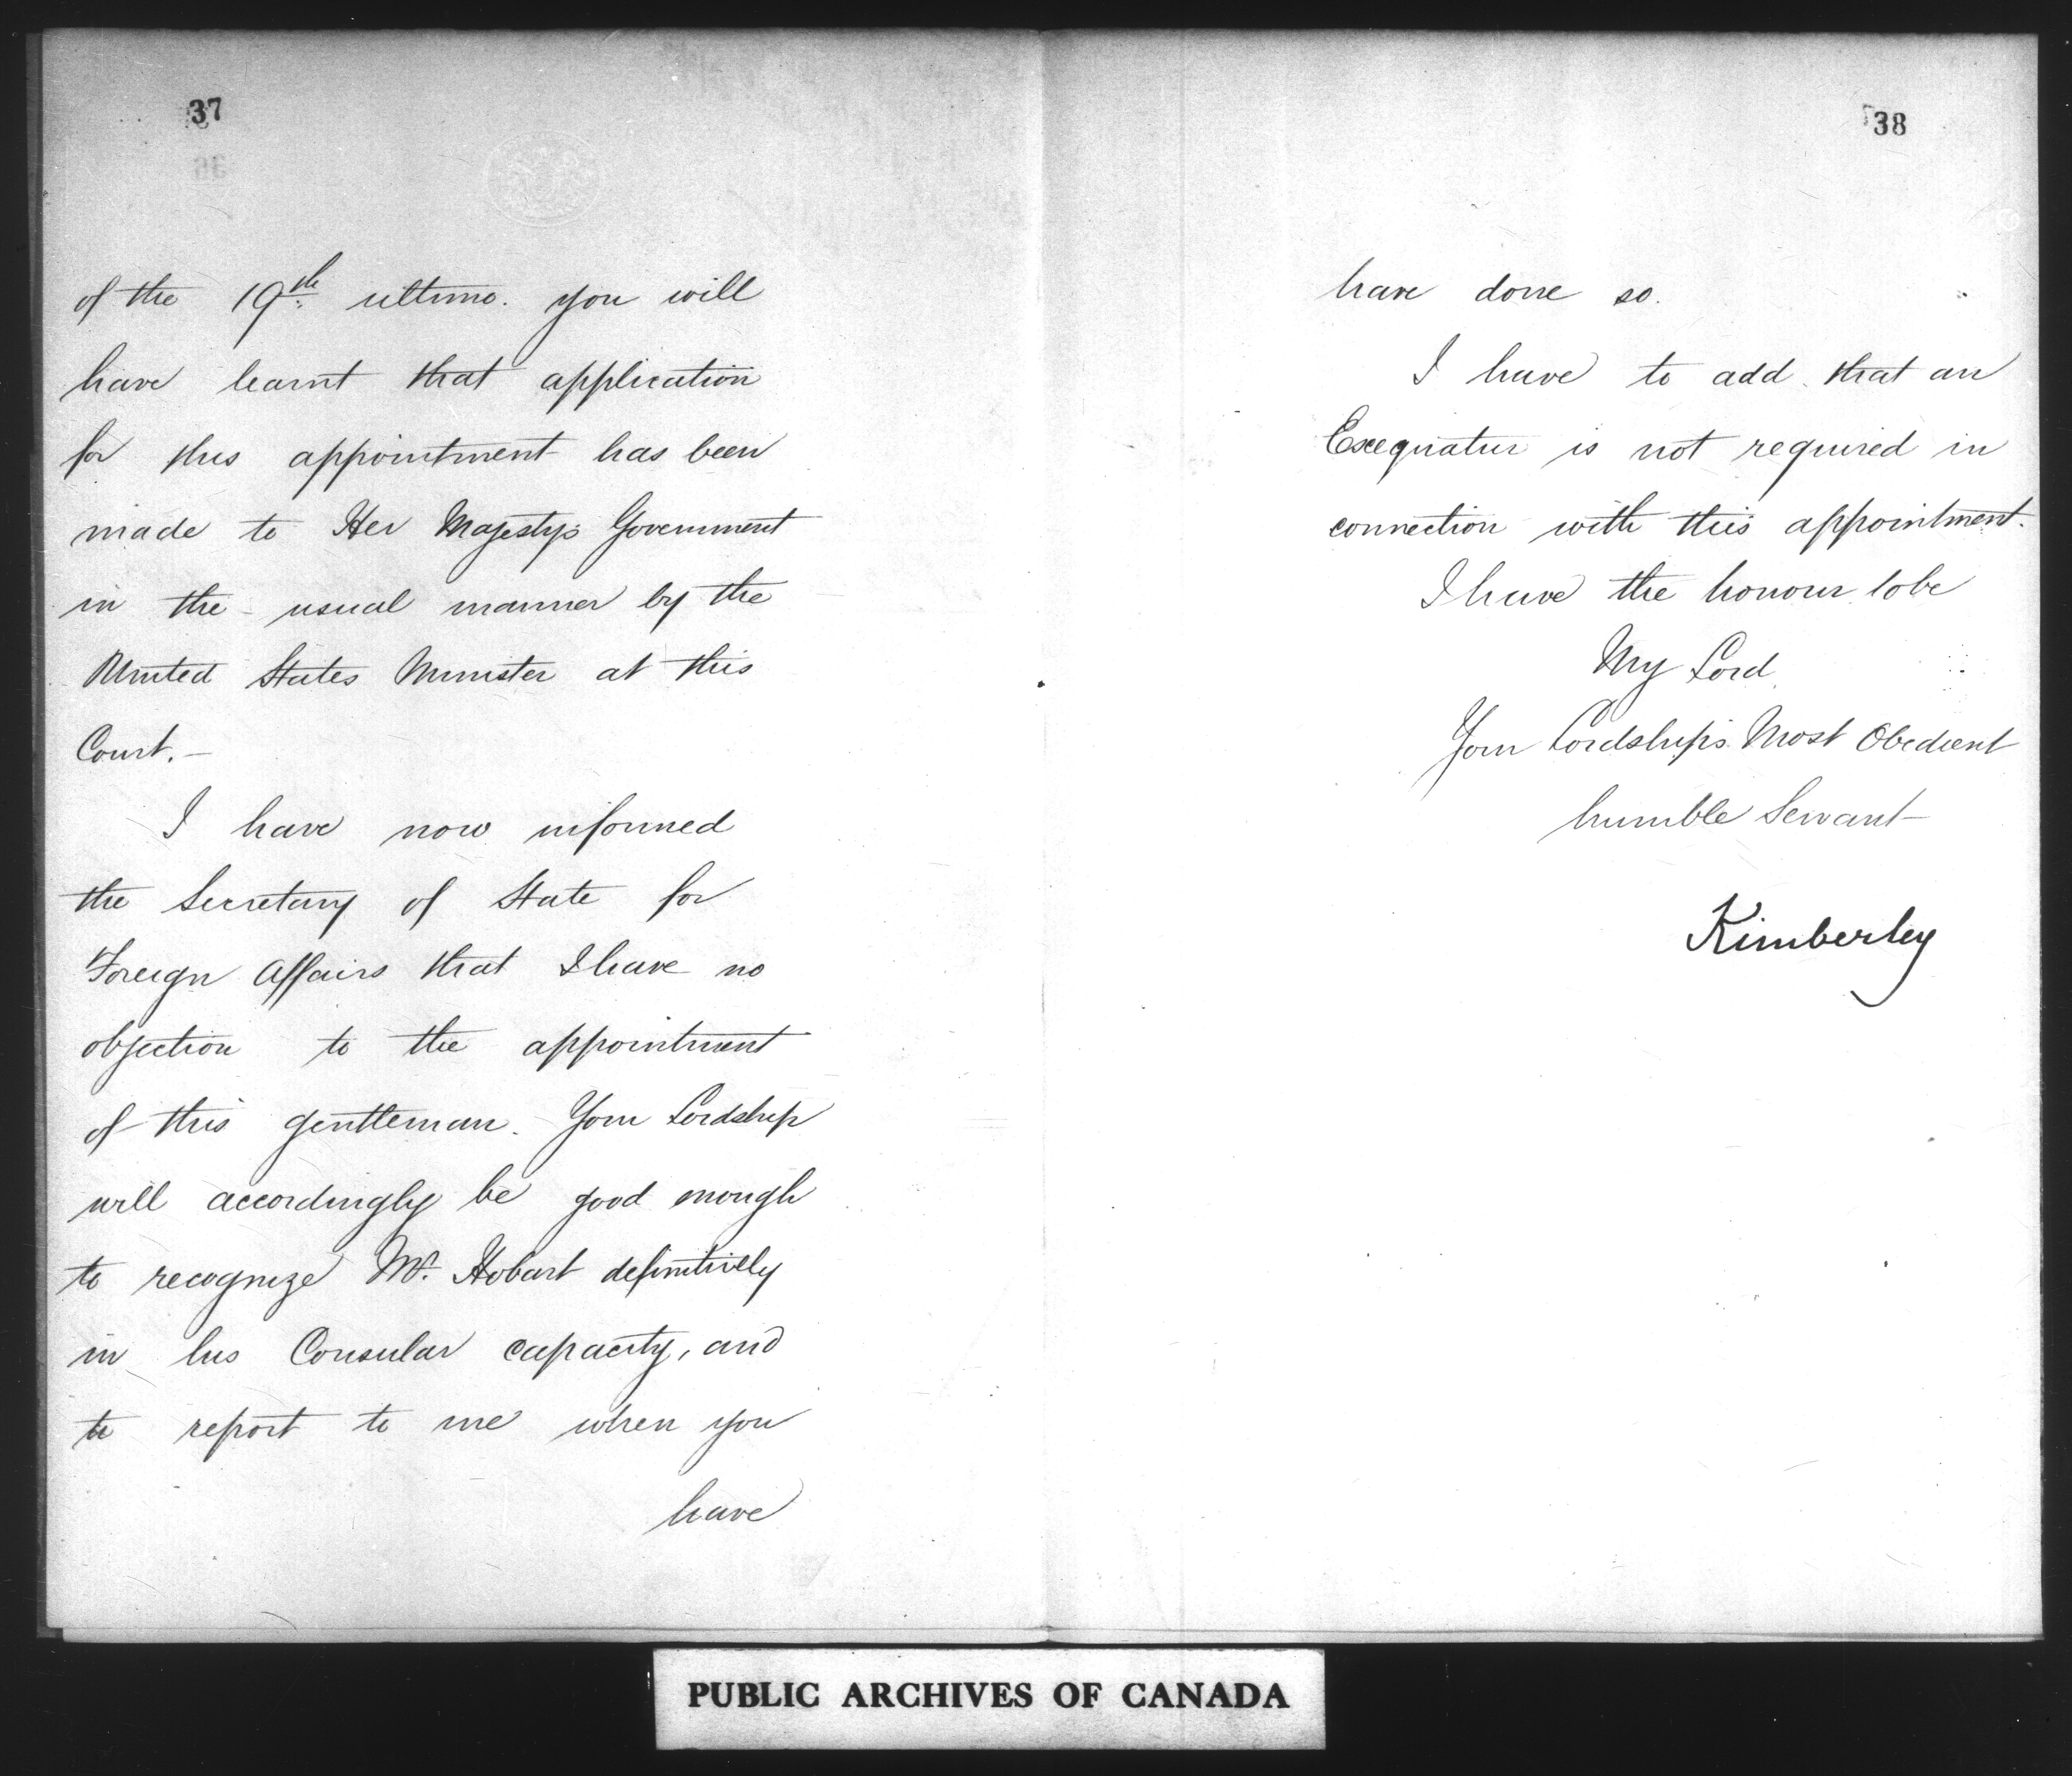 37
of the 19th ultimo. you will
have learnt that application
for this appointment has been
made to Her Majesty's Government
in the usual manner by the
United States Minister at this
Court.—
I have now informed
the Secretary of State for
Foreign Affairs that I have no
objection to the appointment
of this gentleman. Your Lordship
will accordingly be good enough
to recognize Mr. Hobart definitively
in his Consular capacity, and
to report to me when you
have
38
have done so.
I have to add that an
Exequatur is not required in
connection with this appointment.
I have the honour to be
My Lord
Your Lordship's Most Obedient
humble Servant
Kimberley
PUBLIC ARCHIVES OF CANADA